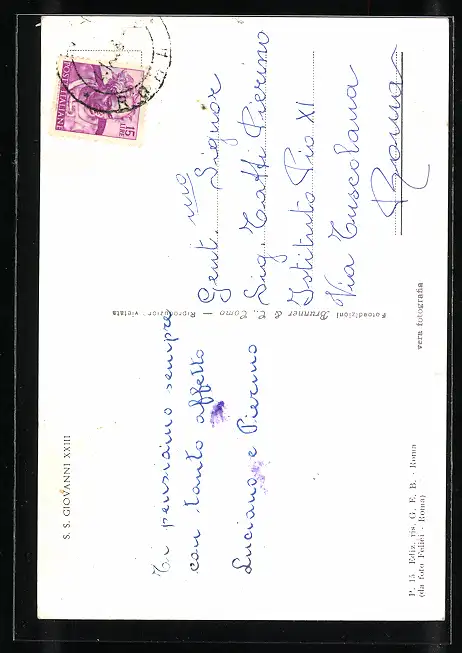 S. S. GIOVANNI XXIII
Ti pensiamo sempre
con tanto affetto
Luciano e Pierino
P. 15 Ediz. ris. G. E. B. - Roma
(da foto Felici - Roma)
Fotoedizioni Brunner & C., Como — Riproduzion vietata
vera fotografia
POSTE ITALIANE
15 LIRE
ROMA
Gent.mo Signor
Sig. Taffi Pierino
Istituto Pio XI
Via Tuscolana
Roma